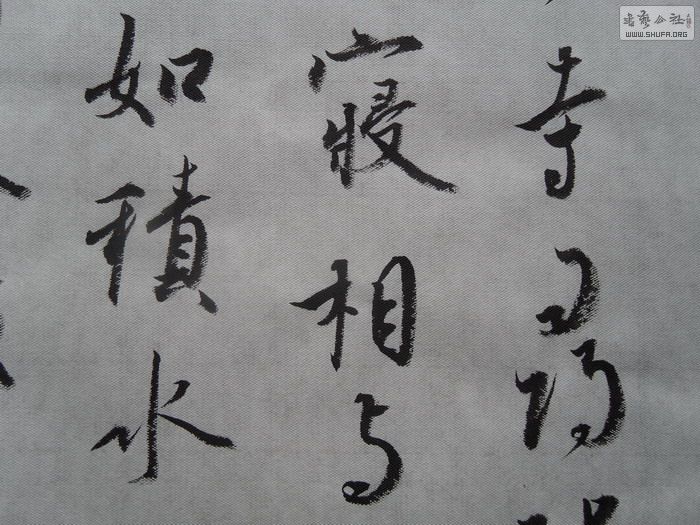 寺尋
寢相与
如積水
書藝公社
WWW.SHUFA.ORG